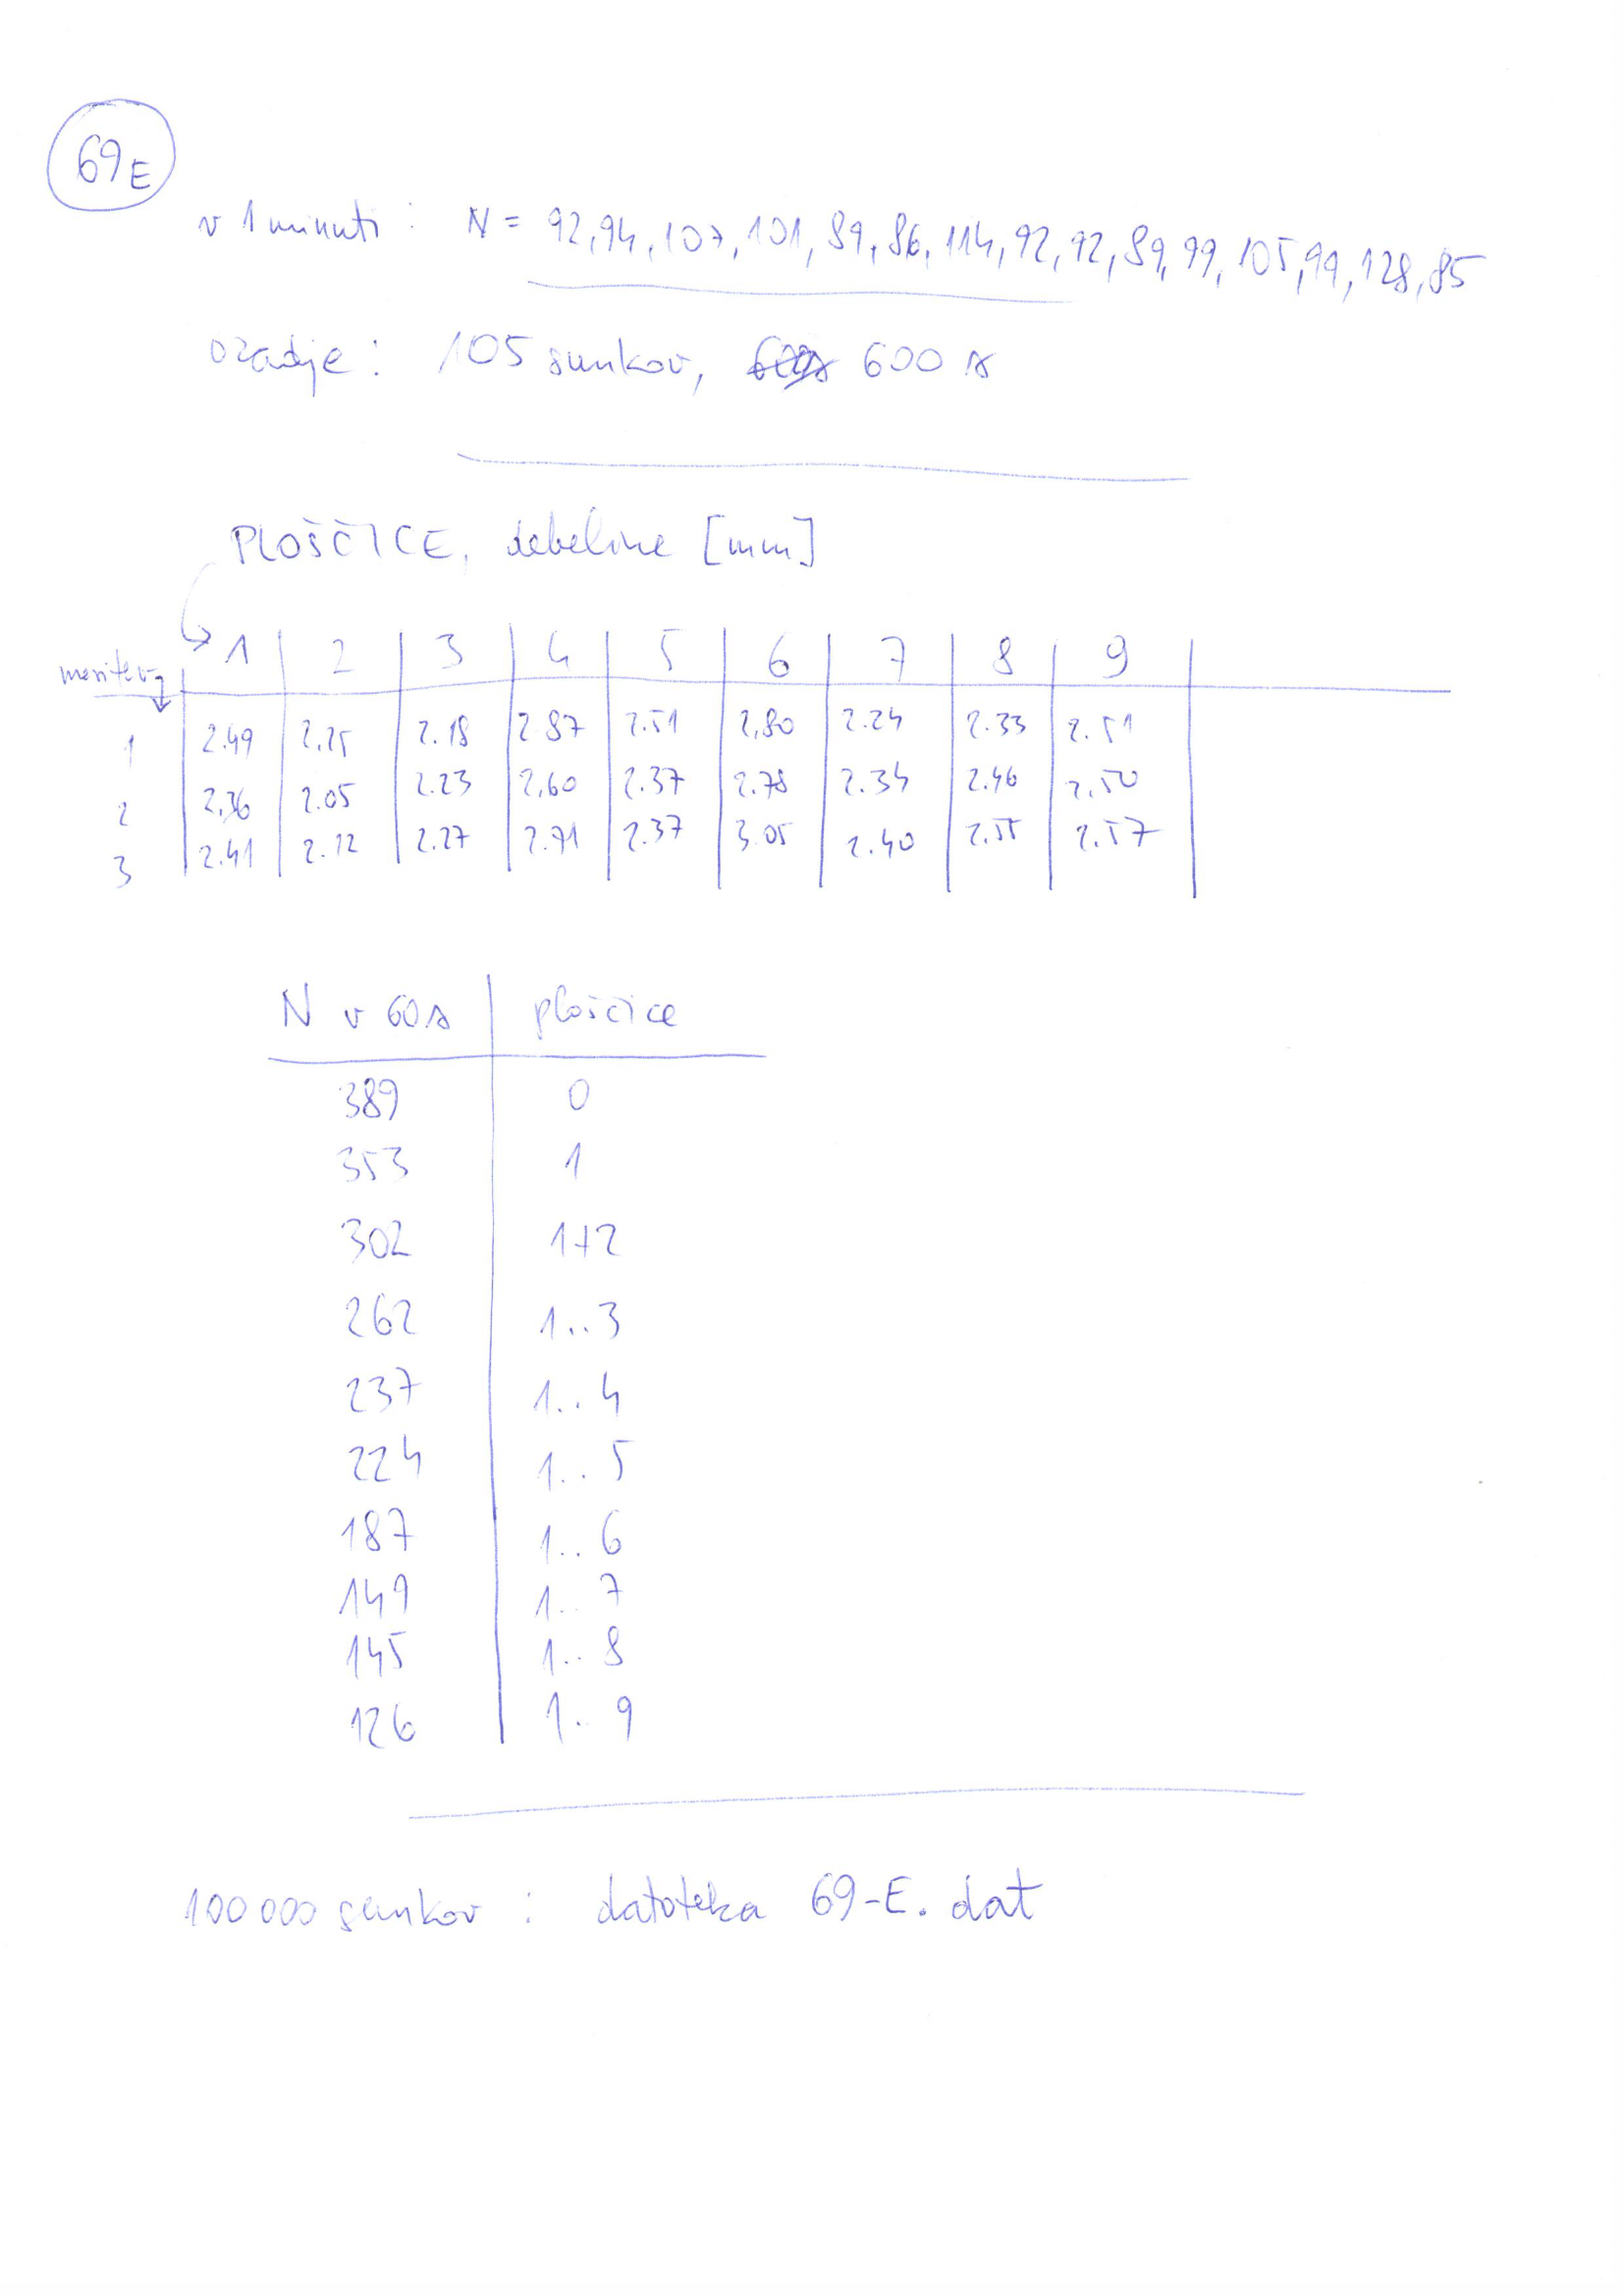 69E
v 1 minuti : N = 92, 94, 107, 101, 89, 86, 114, 92, 92, 89, 99, 105, 99, 128, 85
ozadje : 105 sunkov, 600 s
PLOŠČICE, debeline [mm]
meritev 1 2 3 4 5 6 7 8 9
1 2.49 2.25 2.18 2.87 2.51 2,80 2.24 2.33 2.51
2 2,36 2.05 2.23 2,60 2.37 2.78 2.34 2.46 2,50
3 2.41 2.12 2.27 2.71 2.37 3.05 2.40 2.55 2.57
N v 60s ploščice
389 0
353 1
302 1+2
262 1..3
237 1..4
224 1..5
187 1..6
149 1..7
145 1..8
126 1..9
100 000 sunkov : datoteka 69-E.dat